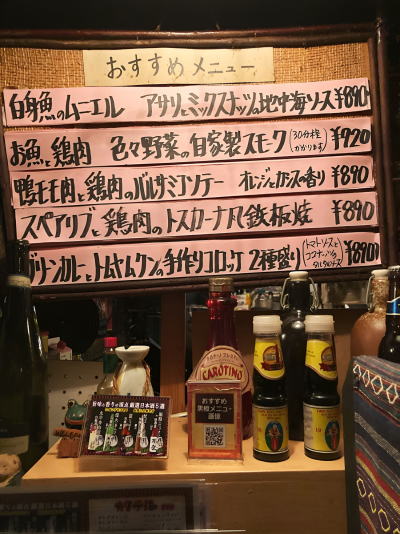 おすすめメニュー
白身魚のムニエル アサリとミックスナッツの地中海ソース ¥890
お魚と鶏肉 色々野菜の自家製スモーク (30分程かかります) ¥920
鴨モモ肉と鶏肉のバルサミコソテー オレンジとカシスの香り ¥890
スペアリブと鶏肉のトスカーナ風鉄板焼 ¥890
グリーンカレーとトムヤムクンの手作りコロッケ 2種盛り (トマトソースとココナッツタルタルソース) ¥890
CAROTINO
おすすめ
黒板メニュー
画像